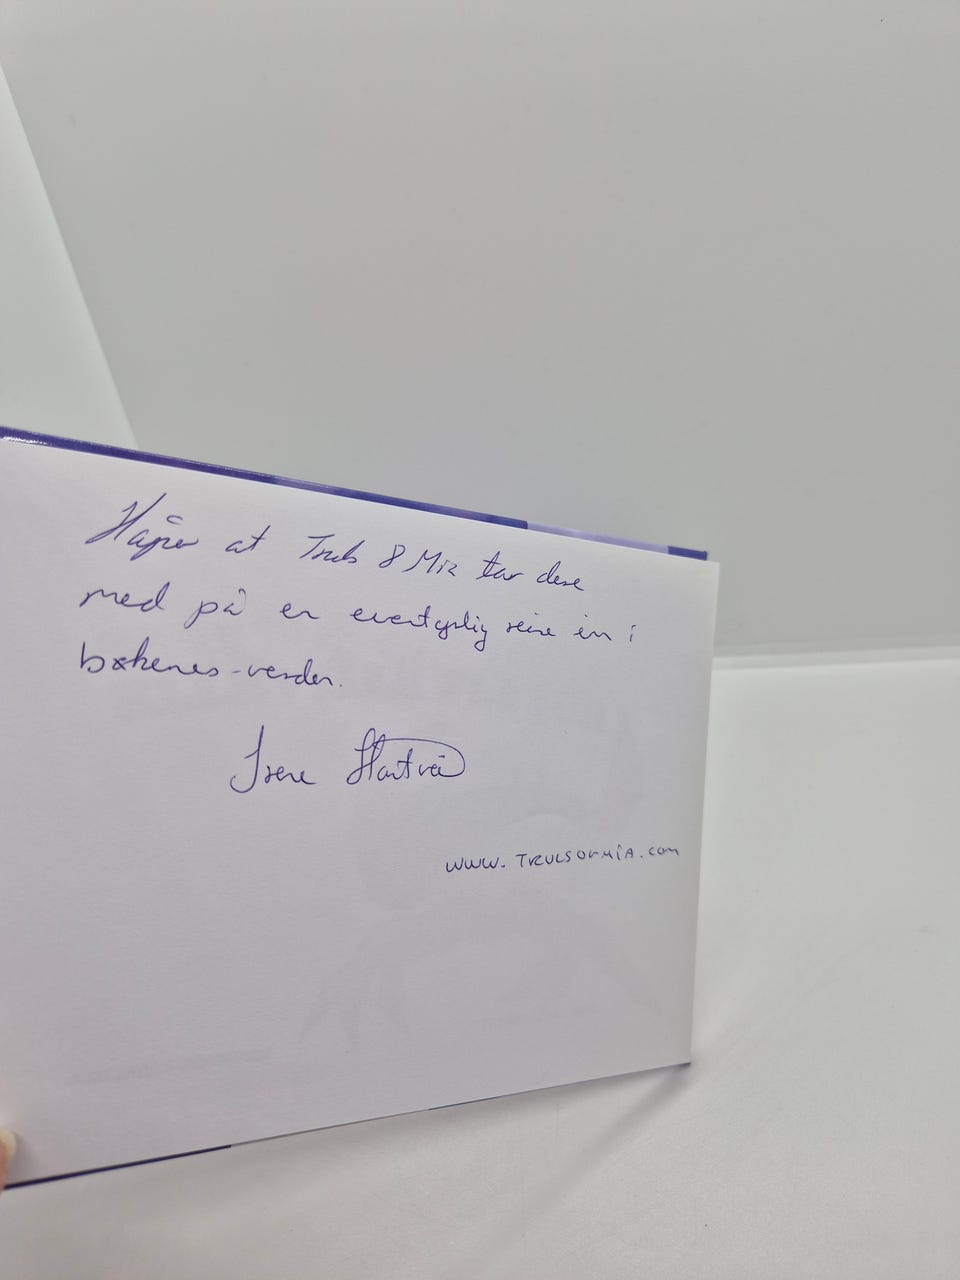 Håper at Truls & Mia tar dere
med på en eventyrlig reise inn i
bøkenes-verden.
Irene Hartvei
www.TRULSOGMIA.com